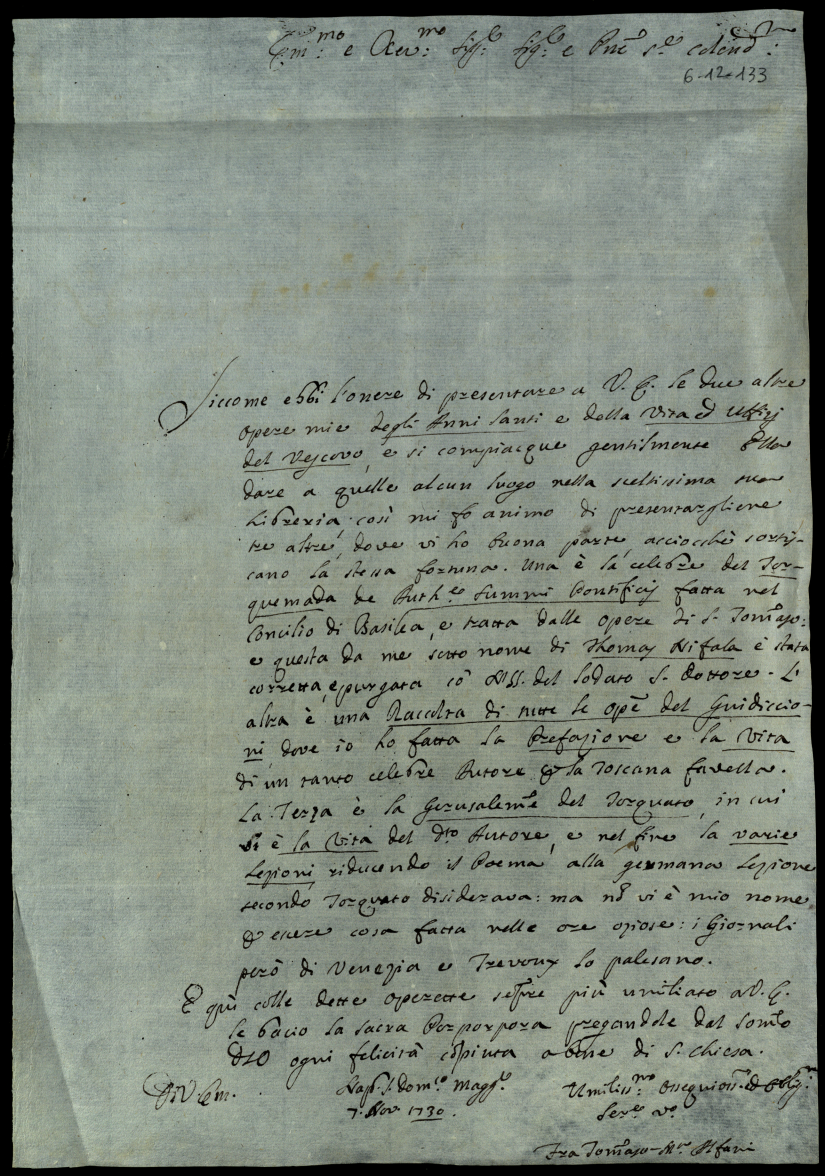 Em:mo e Rev:mo Sig:re Sig:re e Pne s:e colend:mo
6-12-133
Siccome ebbi l'onere di presentare a V. E. le due altre
opere mie degli Anni Santi e della Vita ed Uffizj
del Vescovo, e si compiacque gentilmente Ella
dare a quelle alcun luogo nella sceltissima sua
Libreria; così mi fo animo di presentargliene
tre altre, dove vi ho buona parte, acciocchè sorti-
cano la stessa fortuna. Una è la celebre del Tor-
quemada de Auth.e Summi Pontificis fatta nel
Concilio di Basilea, e tratta dalle opere di S. Tomaso:
e questa da me sotto nome di Thomas Nifala è stata
corretta, epurgata cõ Mss. del lodato S. Dottore. L'
altra è una Raccolta di tutte le opẽ del Guidiccio-
ni, dove io ho fatta la Prefazione e la Vita
di un tanto celebre Autore p la Toscana favella.
La Terza è la Gerusalemẽ del Torquato, in cui
vi è la Vita del dto Autore, e nel fine la varie
Lezioni, riducendo il Poema alla germana lezione
secondo Torquato disiderava: ma nõ vi è mio nome
p esere cosa fatta nelle ore oziose: i Giornali
però di Venezia e Trevoux lo palesano.
E quì colle dette operette sẽpre più umiliato a V. E.
le bacio la sacra Porporpora pregandole dal somõ
DIO ogni felicità cõpiuta a bene di S. Chiesa.
Di V. Em.
Nap. S. Dom:co Magg:e
7. Nov. 1730.
Umiliss:mo Osequios: ed Oblig:mo
Ser:e vo
Fra Tomaso-M:a Alfani